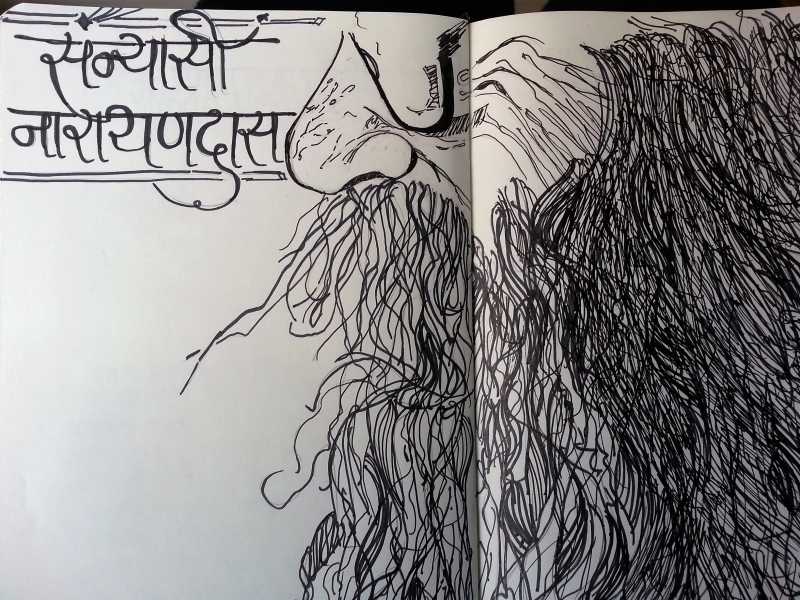 संन्यासी
नारायणदास